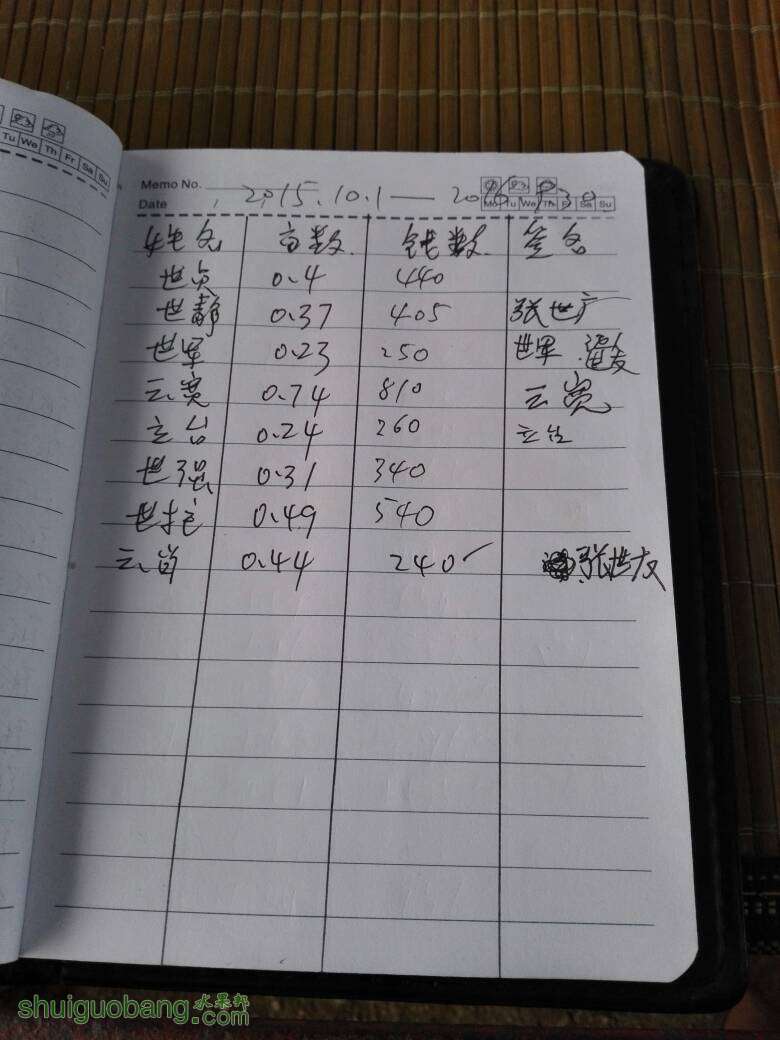 Tu We Th Fr Sa Su
Memo No.
Mo Tu We Th Fr Sa Su
Date 2015.10.1 — 2016.9.30
姓名 亩数 钱数 签名
世贞 0.4 440
世静 0.37 405 张世广
世军 0.23 250 世军
云宽 0.74 810 云宽
立台 0.24 260 立台
世强 0.31 340
世拉 0.49 540
云肖 0.44 240 ✓ 张世友
shuiguobang.com 水果邦